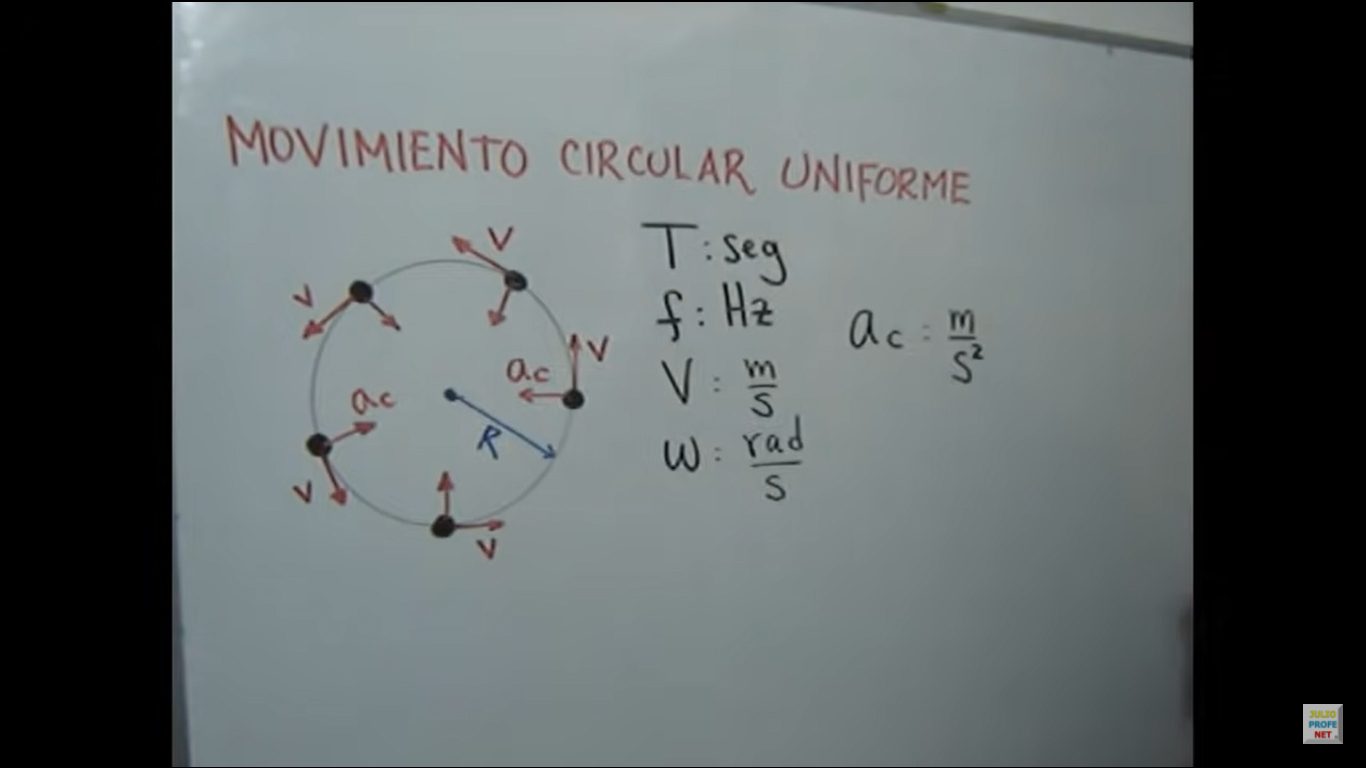 MOVIMIENTO CIRCULAR UNIFORME
V
V
V
ac
ac
R
V
V
T : seg
f : Hz
V : m/s
ω : rad/s
ac : m/s²
JULIO
PROFE
NET